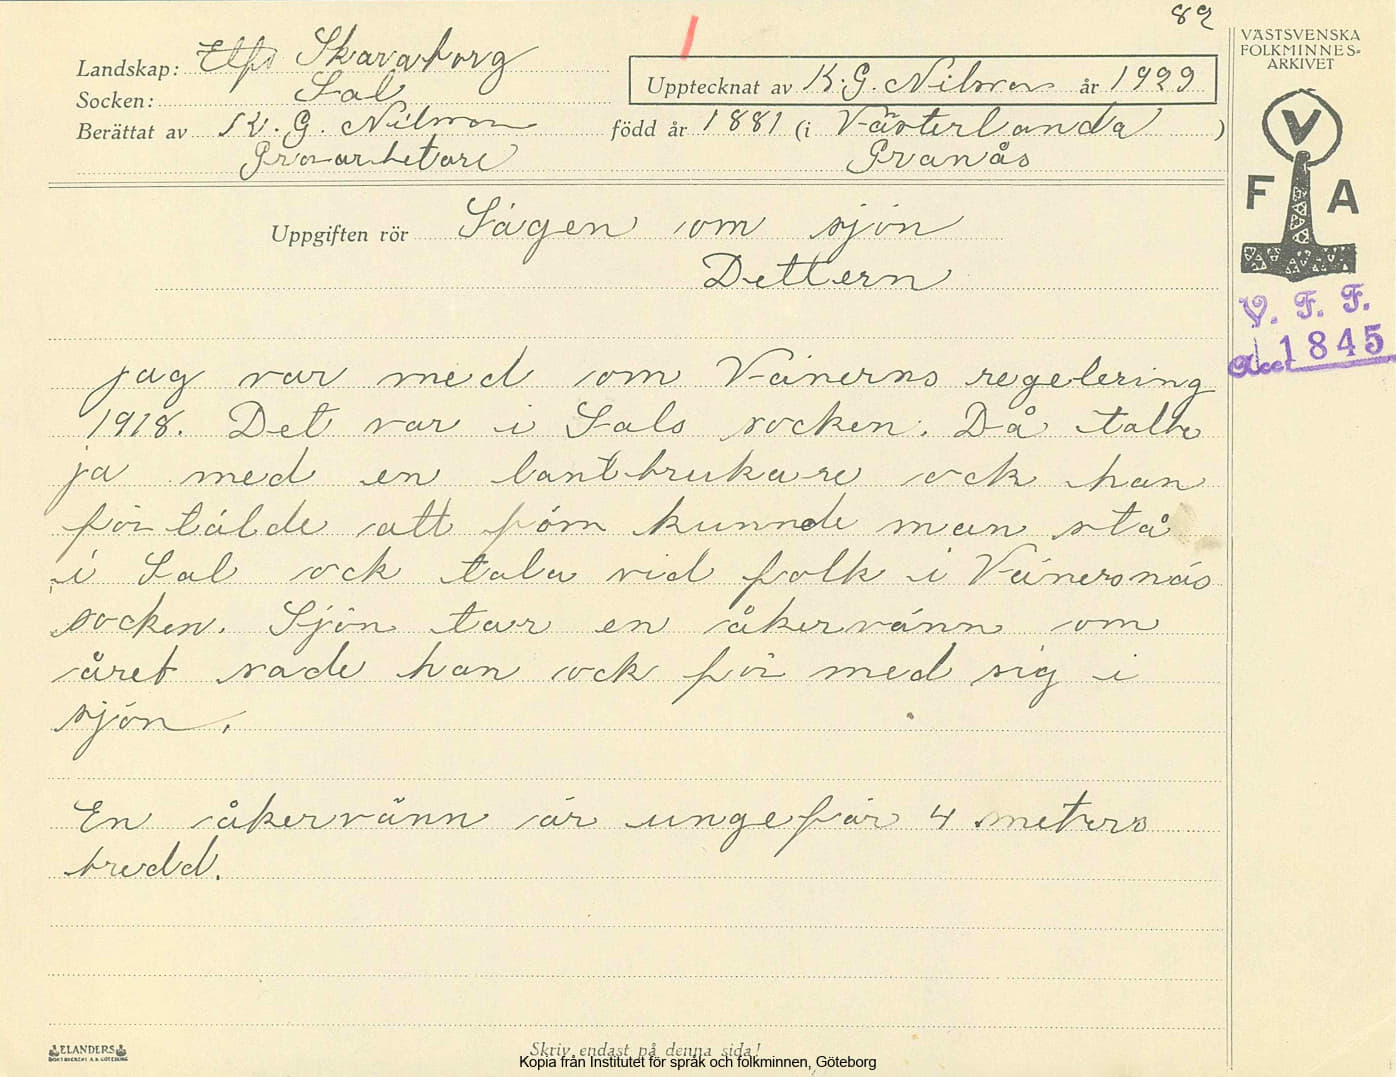 82
VÄSTSVENSKA
FOLKMINNES-
ARKIVET
Landskap: Skaraborg
Socken: Sal
Upptecknat av K. G. Nilsson år 1929
Berättat av K. G. Nilsson född år 1881 (i Västerlanda )
Grovarbetare Granås
V
F A
Uppgiften rör Sägen om sjön
Dettern
V. F. F.
Acc 1845
jag var med om Vänerns regelering
1918. Det var i Sals socken. Då talte
ja med en lantbrukare ock han
förtälde att förn kunnde man stå
i Sal ock tala vid folk i Vänersnäs
socken. Sjön tar en åkervänn om
året sade han ock för med sig i
sjön.
En åkervänn är ungefär 4 meters
bredd.
ELANDERS
BOKTRYCKERI A.B. GÖTEBORG
Skriv endast på denna sida!
Kopia från Institutet för språk och folkminnen, Göteborg